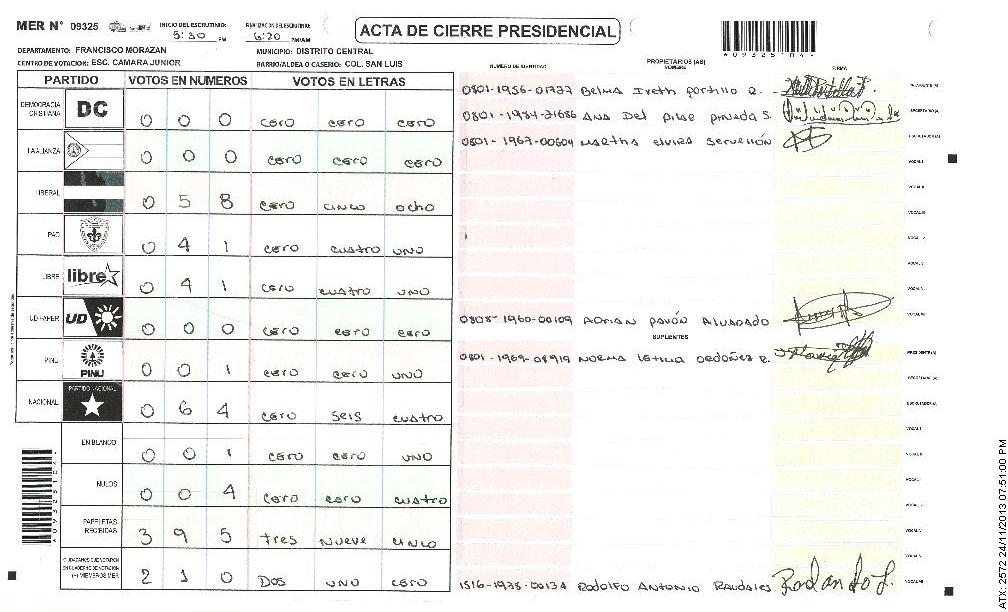 MER N° 09325 INICIO DEL ESCRUTINIO: 5:30 PM FINALIZACION DEL ESCRUTINIO: 6:20 PM/AM ACTA DE CIERRE PRESIDENCIAL
DEPARTAMENTO: FRANCISCO MORAZAN MUNICIPIO: DISTRITO CENTRAL
CENTRO DE VOTACION: ESC. CAMARA JUNIOR BARRIO/ALDEA O CASERIO: COL. SAN LUIS
PARTIDO VOTOS EN NUMEROS VOTOS EN LETRAS
DEMOCRACIA CRISTIANA DC 0 0 0 cero cero cero
LA ALIANZA 0 0 0 cero cero cero
LIBERAL 0 5 8 cero cinco ocho
PAC 0 4 1 cero cuatro uno
LIBRE libre 0 4 1 cero cuatro uno
UD-FAPER UD 0 0 0 cero cero cero
PINU PINU 0 0 1 cero cero uno
NACIONAL PARTIDO NACIONAL 0 6 4 cero seis cuatro
EN BLANCO 0 0 1 cero cero uno
NULOS 0 0 4 cero cero cuatro
PAPELETAS RECIBIDAS 3 9 5 tres nueve cinco
CIUDADANOS QUE VOTARON EN CUADERNO DE VOTACION (+) MIEMBROS MER 2 1 0 Dos uno cero
NUMERO DE IDENTIDAD PROPIETARIOS (AS) NOMBRE FIRMA
Belma Iveth Portillo R. PRESIDENTE (A)
Ana Del Pilar Pineda S. SECRETARIO (A)
0801-1967-00604 Martha elvira servellón ESCRUTADOR (A)
VOCAL I
VOCAL II
VOCAL III
VOCAL IV
VOCAL V
0808-1960-00109 Adrian pavón Alvarado
SUPLENTES
0801-1969-08919 Norma Leticia Ordoñez R. PRESIDENTE (A)
SECRETARIO (A)
ESCRUTADOR (A)
VOCAL I
VOCAL II
VOCAL IV
VOCAL V
Rodolfo Antonio Raudales
ATX: 2572 24/11/2013 07:51:00 PM